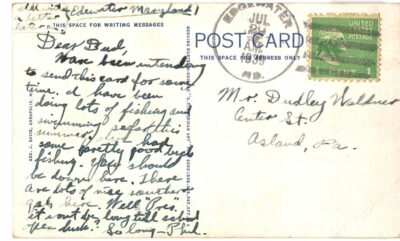 of Edewater Maryland
a letter
THIS SPACE FOR WRITING MESSAGES
Dear Bud,
Have been intending
to send this card for some
time. I have been
doing lots of fishing and
swimming so far this
summer, also had
some pretty good luck
fishing. You should
be down here. There
are lots of nice southern
gals here. Well "Pres"
it won't be long till school
So long - Phil.
POST CARD
THIS SPACE FOR ADDRESS ONLY
EDGEWATER
JUL
AM
MD.
1 CENT 1
Mr. Dudley Waldner
Center St.
Asland, Pa.